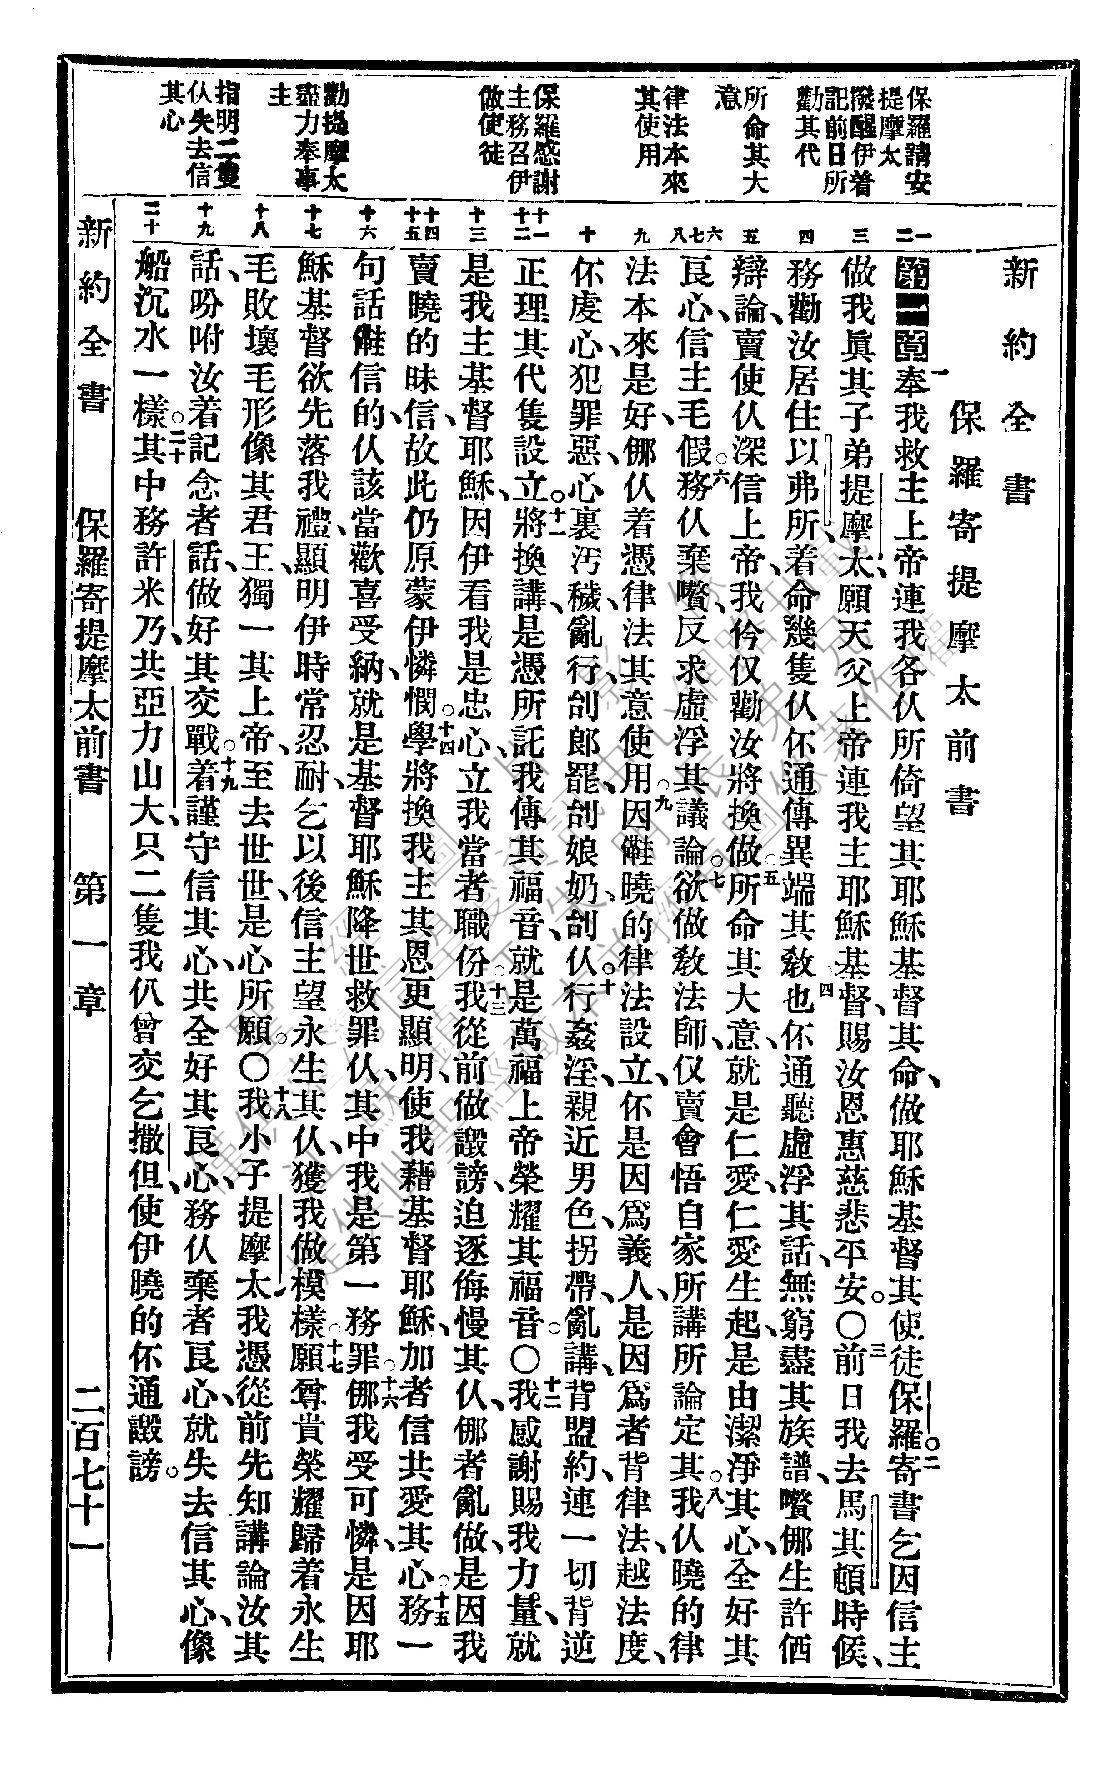 新約全書
保羅寄提摩太前書
第一章
一奉我救主上帝連我各仈所倚望其耶穌基督其命、做耶穌基督其使徒保羅。二寄書乞因信主
做我眞其子弟提摩太、願天父上帝連我主耶穌基督、賜汝恩惠慈悲平安。〇三前日我去馬其頓時候、
務勸汝居住以弗所、着命幾隻仈伓通傳異端其敎、四也伓通聽虛浮其話、無窮盡其族譜、嚽㑚生許
辯論、賣使仈深信上帝、我仱仅勸汝將換做。五所命其大意、就是仁愛、仁愛生起、是由潔淨其心、全好其
良心、信主毛假。六務仈棄嚽、反求虛浮其議論。七欲做敎法師、仅賣會悟自家所講所論定其。八我仈曉的律
法本來是好、㑚仈着憑律法其意使用。九因曉的律法設立、伓是因爲義人、是因爲者背律法、越法度、
伓虔心、犯罪惡、心裏汚穢、亂行、刣郎罷、刣娘奶、刣仈。十行姦淫、親近男色、拐帶、亂講、背盟約、連一切背逆
正理其代隻設立。十一將換講、是憑所託我傳其福音、就是萬福上帝榮耀其福音。〇十二我感謝賜我力量、就
是我主基督耶穌、因伊看我是忠心、立我當者職份。十三我從前做譭謗、迫逐侮慢其仈、㑚者亂做、是因我
賣曉的昧信、故此仍原蒙伊憐憫。十四學將換我主其恩更顯明、使我藉基督耶穌、加者信共愛其心。十五務一
句話、信的、仈該當歡喜受納、就是基督耶穌降世救罪仈、其中我是第一務罪。十六㑚我受可憐、是因耶
穌基督欲先落我禮、顯明伊時常忍耐、乞以後信主望永生其仈、獲我做模樣。十七願尊貴榮耀歸着永生
毛敗壞毛形像其君王、獨一其上帝、至去世世、是心所願。〇十八我小子提摩太、我憑從前先知講論汝其
話、吩咐汝着記念者話、做好其交戰。十九着謹守信其心、共全好其良心、務仈棄者良心、就失去信其心、像
船沉水一樣。二十其中務許米乃、共亞力山大、只二隻我仈曾交乞撒但、使伊曉的伓通譭謗。
保羅請安提摩太
撥醒伊着記前日所勸其代
所命其大意
律法本來其使用
保羅感謝主務召伊做使徒
勸提摩太盡力奉事主
指明二隻仈失去信其心
一二
三
四
五
六七八
九
十
十一十二
十三
十四十五
十六
十七
十八
十九
二十
新約全書
保羅寄提摩太前書
第一章
二百七十一